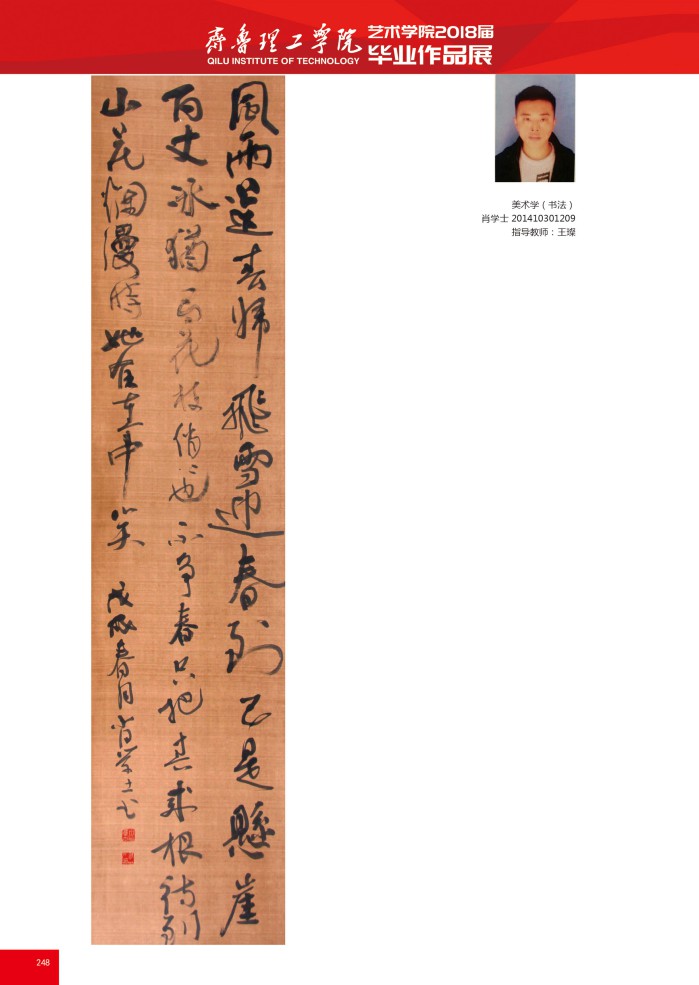 齊魯理工學院
QILU INSTITUTE OF TECHNOLOGY
艺术学院2018届
毕业作品展
風雨送春歸飛雪迎春到已是懸崖
百丈冰猶有花枝俏俏也不争春只把春来报待到
山花爛漫時她在丛中笑 戊戌春月肖学士书
美术学（书法）
肖学士 201410301209
指导教师：王璨
248